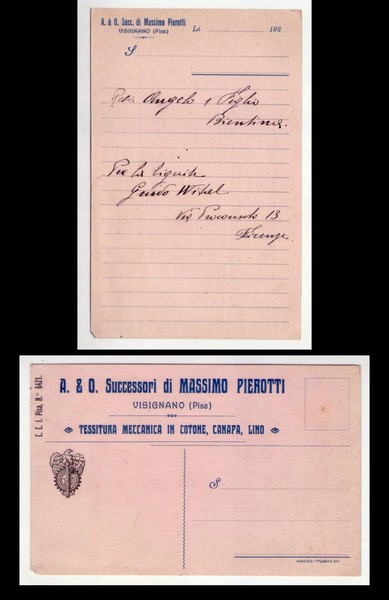 A. & O. Succ. di Massimo Pierotti
VISIGNANO (Pisa)
Li 192
S
Angelo e Figlio
Bientina.
Per la lignite
Guido
Via 13
Firenze
C. C. I. Pisa, N.° 6421.
A. & O. Successori di MASSIMO PIEROTTI
VISIGNANO (Pisa)
TESSITURA MECCANICA IN COTONE, CANAPA, LINO
S